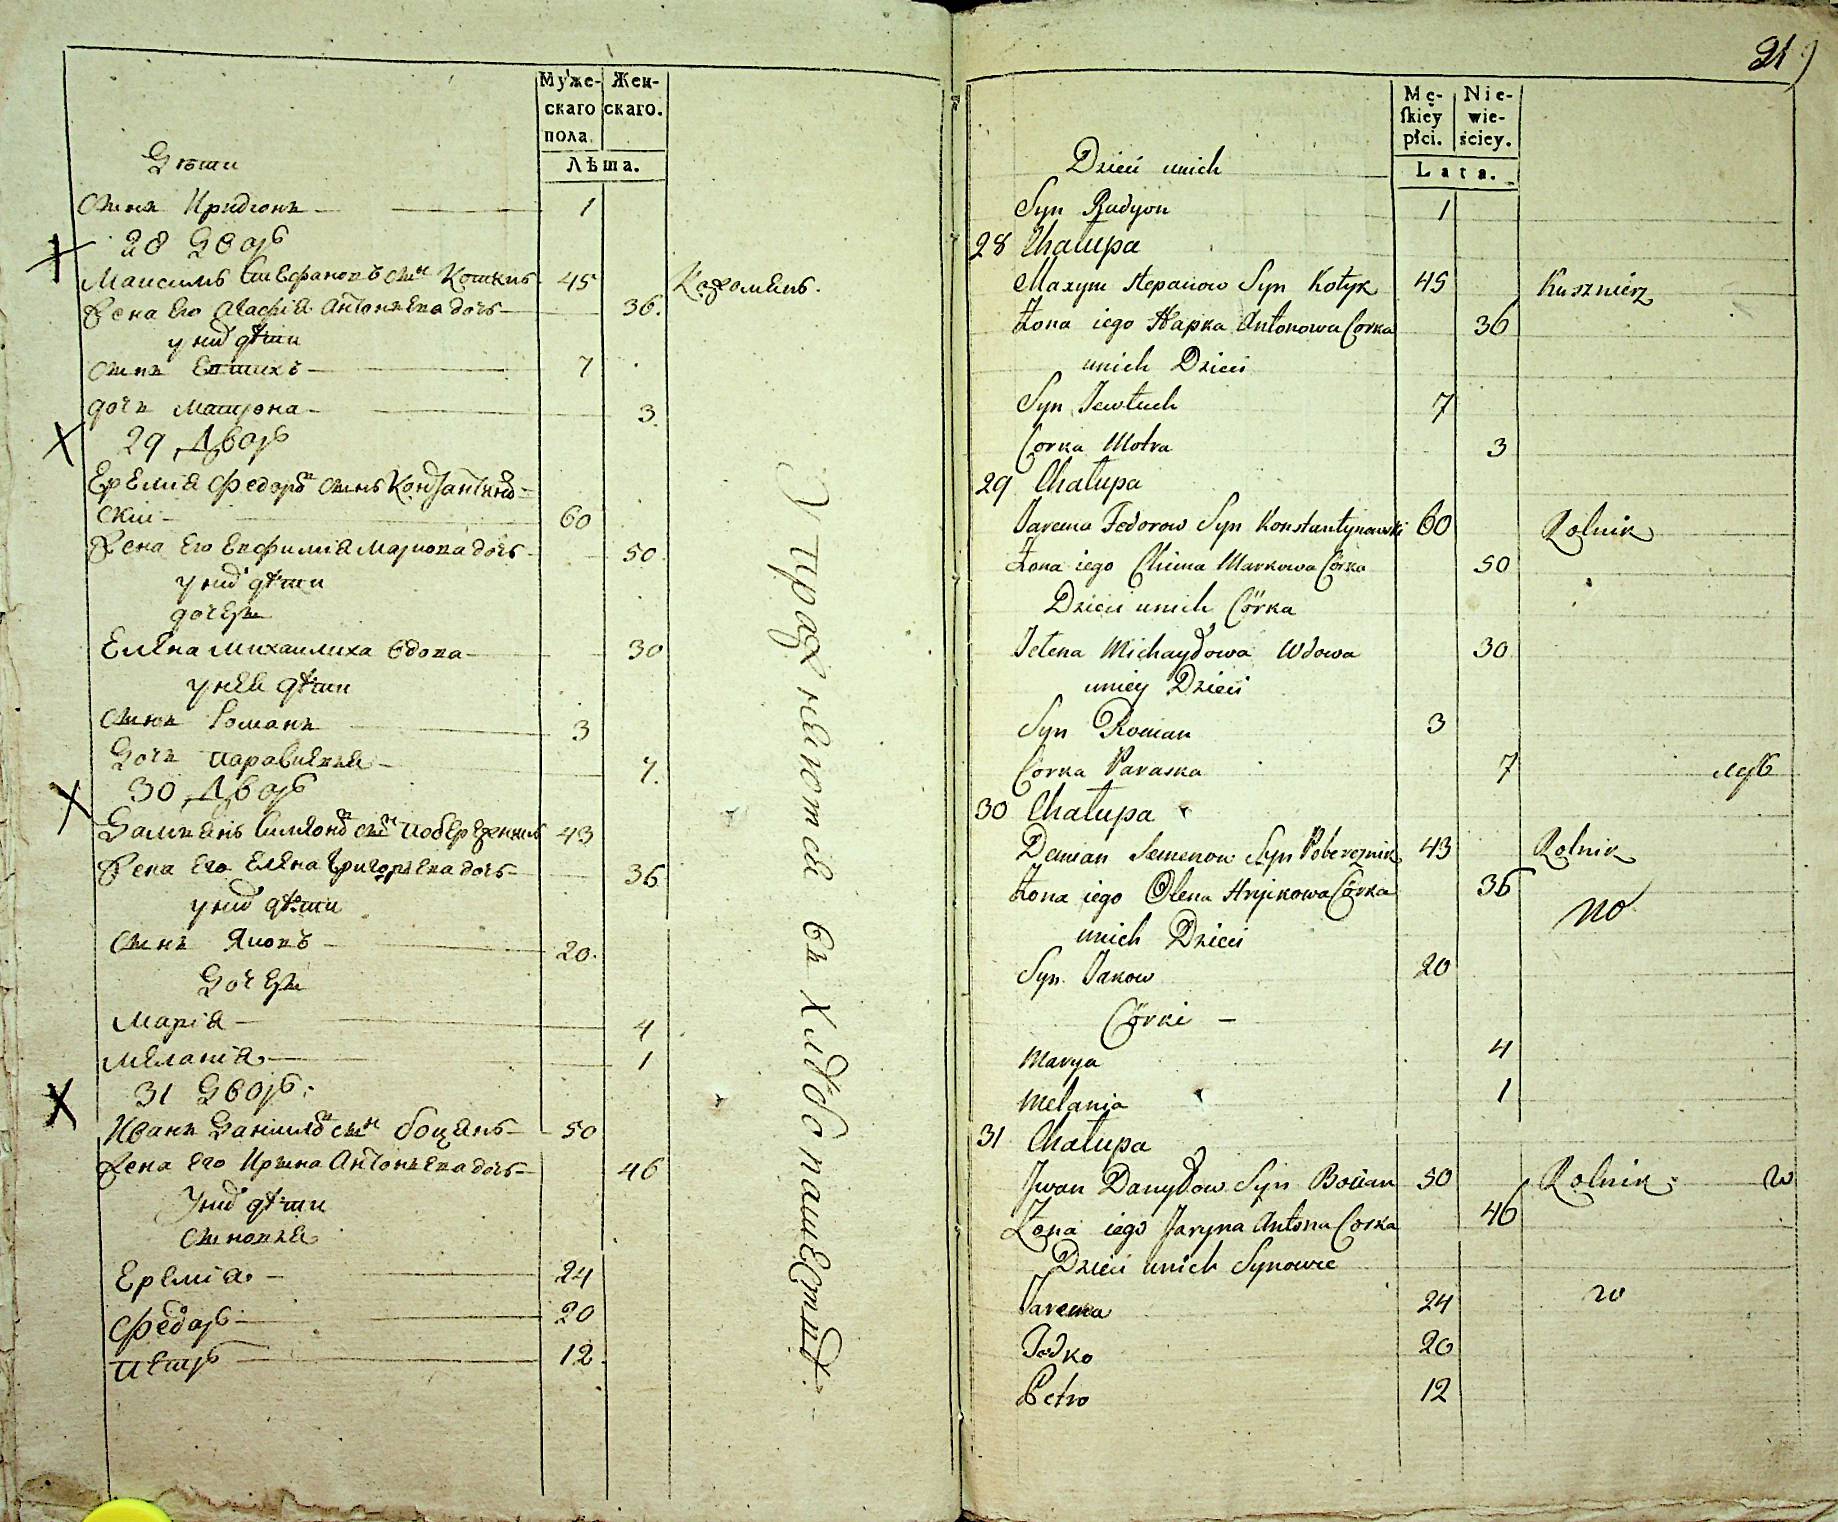 Муже-
скаго
пола.
Жен-
скаго.
Лѣта.
Дѣти
Сынъ Иридіонъ 1
28 Дворъ
Максимъ Стефановъ сынъ Котикъ 45 Кожомякъ.
Жена Его Агафія Антоньева дочь 36.
у них дѣти
Сынъ Евтихъ 7
дочь Матрона 3.
29 Дворъ
Еремія Федоровъ сынъ Константинов-
ски 60
Жена Его Евфимія Маркова дочь 50.
у них дѣти
дочеры
Елена Михаилиха вдова 30
у нея дѣти
Сынъ Романъ 3
Дочь Параскевія 7.
30 Дворъ
Дамиянъ Симіоновъ сынъ Побережникъ 43
Жена Его Елена Григорьева дочь 36
у них дѣти
Сынъ Яковъ 20.
Дочеры
Марія 4
Меланія 1
31 Дворъ:
Иванъ Даниилов сынъ боцянъ 50
Жена Его Ирина Антоньева дочь 46
У них дѣти
Сыновья
Еремія 24
Федоръ 20
Петръ 12.
Упражняются въ хлѣбопашествѣ.
21
Mę-
skiey
płci.
Nie-
wie-
ściey.
Lata.
Dzieci unich
Syn Rudyon 1
28 Chałupa
Maxym Stepanow Syn Kotyk 45 Kusznierz
Żona iego Hapka Antonowa Corka 36
unich Dzieci
Syn Jewtuch 7
Corka Motra 3
29 Chałupa
Jarema Fedorow Syn Konstantynowski 60 Rolnik
Żona iego Chima Markowa Córka 50
Dzieci unich Córka
Jelena Michayłowa Wdowa 30
uniey Dzieci
Syn Roman 3
Corka Paraska 7
30 Chałupa
Demian Semenow Syn Pobereznik 43 Rolnik
Żona iego Olena Hryćkowa Córka 36
no
unich Dzieci
Syn Jakow 20
Córki
Marya 4
Melania 1
31 Chałupa
Jwan Danyłow Syn Bocian 50 Rolnik
Żona iego Jaryna Antonu Corka 46
Dzieci unich Synowie
Jarema 24
Fedko 20
Petro 12